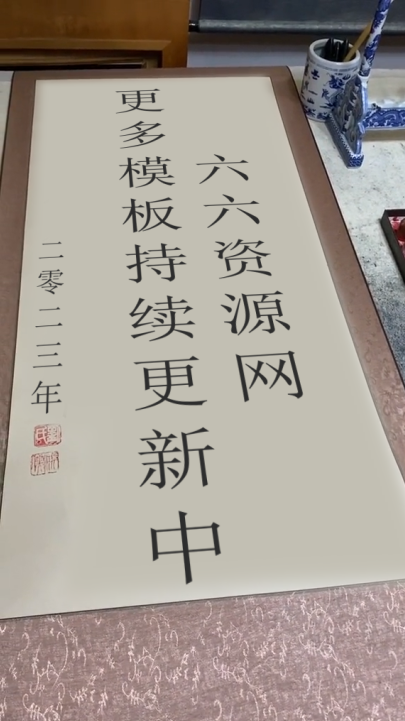 六六资源网
更多模板持续更新中
二零二三年